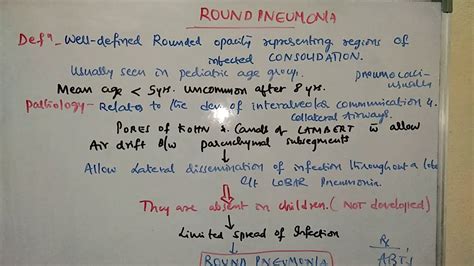 ROUND PNEUMONIA
Defn - Well-defined Rounded opacity representing regions of
infected CONSOLIDATION.
Usually seen in pediatric age group.
pneumococci - usually
Mean age < 5yrs. uncommon after 8 yrs.
Pathology - Relates to the dev of interalveolar communication &
collateral Airways.
PORES of KOHN & Canals of LAMBERT allow
Air drift B/w parenchymal subsegments
↓
Allow Lateral dissemination of infection throughout a lobe
LOBAR Pneumonia.
They are absent in children. (NOT developed)
↓
Limited Spread of Infection
↓
ROUND PNEUMONIA
Rx
↓
ABT's